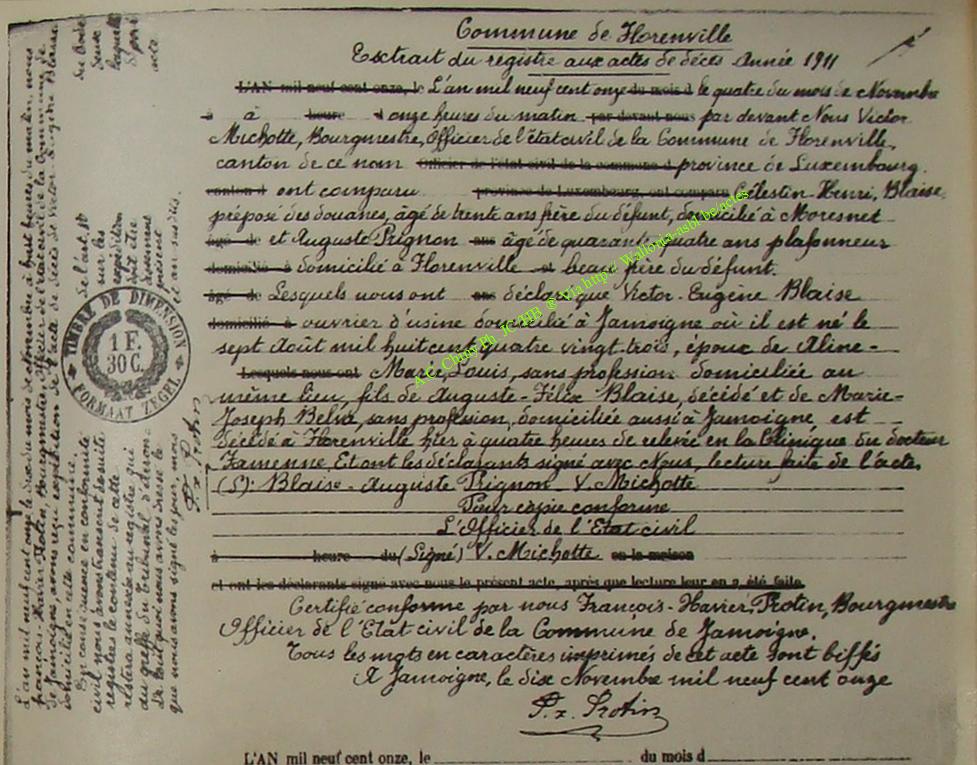 Commune de Florenville
Extrait du registre aux actes de décès Année 1911
L'AN mil neuf cent onze, le L'an mil neuf cent onze du mois d le quatre du mois de Novembre
à à heure d onze heures du matin par devant nous par devant Nous Victor
Michotte, Bourgmestre, Officier de l'état civil de la Commune de Florenville,
canton de ce nom Officier de l'état civil de la commune d province de Luxembourg.
canton d ont comparu province de Luxembourg, ont comparu Célestin-Henri, Blaise
préposé des douanes, âgé de trente ans frère du défunt, domicilié à Moresnet
âgé de et Auguste Prignon ans âgé de quarante quatre ans plafonneur
domicilié à domicilié à Florenville et beau frère du défunt.
âgé de Lesquels nous ont ans déclaré que Victor-Eugène Blaise
domicilié à ouvrier d'usine domicilié à Jamoigne où il est né le
sept Août mil huit cent quatre vingt trois, époux de Aline-
Lesquels nous ont Marie, Louis, sans profession domiciliée au
même lieu, fils de Auguste-Félix Blaise, décédé et de Marie-
Joseph Belva, sans profession, domiciliée aussi à Jamoigne est
décédé à Florenville hier à quatre heures de relevée en la Clinique du docteur
Famenne, Et ont les déclarants signé avec Nous, lecture faite de l'acte.
(S): Blaise - Auguste Prignon - V. Michotte
Pour copie conforme
L'Officier de l'Etat civil
à heure du (Signé) V. Michotte en la maison
et ont les déclarants signé avec nous le présent acte, après que lecture leur en a été faite.
Certifié conforme par nous François-Xavier, Protin, Bourgmestre
Officier de l'Etat civil de la Commune de Jamoigne.
Tous les mots en caractères imprimés de cet acte sont biffés
A Jamoigne, le dix Novembre mil neuf cent onze
F. x. Protin
L'AN mil neuf cent onze, le du mois d
L'an mil neuf cent onze le dix du mois de novembre à huit heures du matin, nous
François-Xavier Protin, Bourgmestre, officier de l'état civil de la Commune de
Jamoigne, avons reçu expédition de l'acte de décès de Victor-Eugène Blaise
domicilié en cette commune.
En conséquence et en conformité de l'art. 80 du Code
civil nous avons transcrit de suite sur les
registres le contenu de cette expédition laquelle
restera annexée au registre qui doit être
du greffe du tribunal d'arron- dissement
De tout quoi nous avons dressé le présent acte
que nous avons signé les jour, mois et an susdits.
F. x. Protin
TIMBRE DE DIMENSION
1 F.
30 C.
FORMAAT ZEGEL